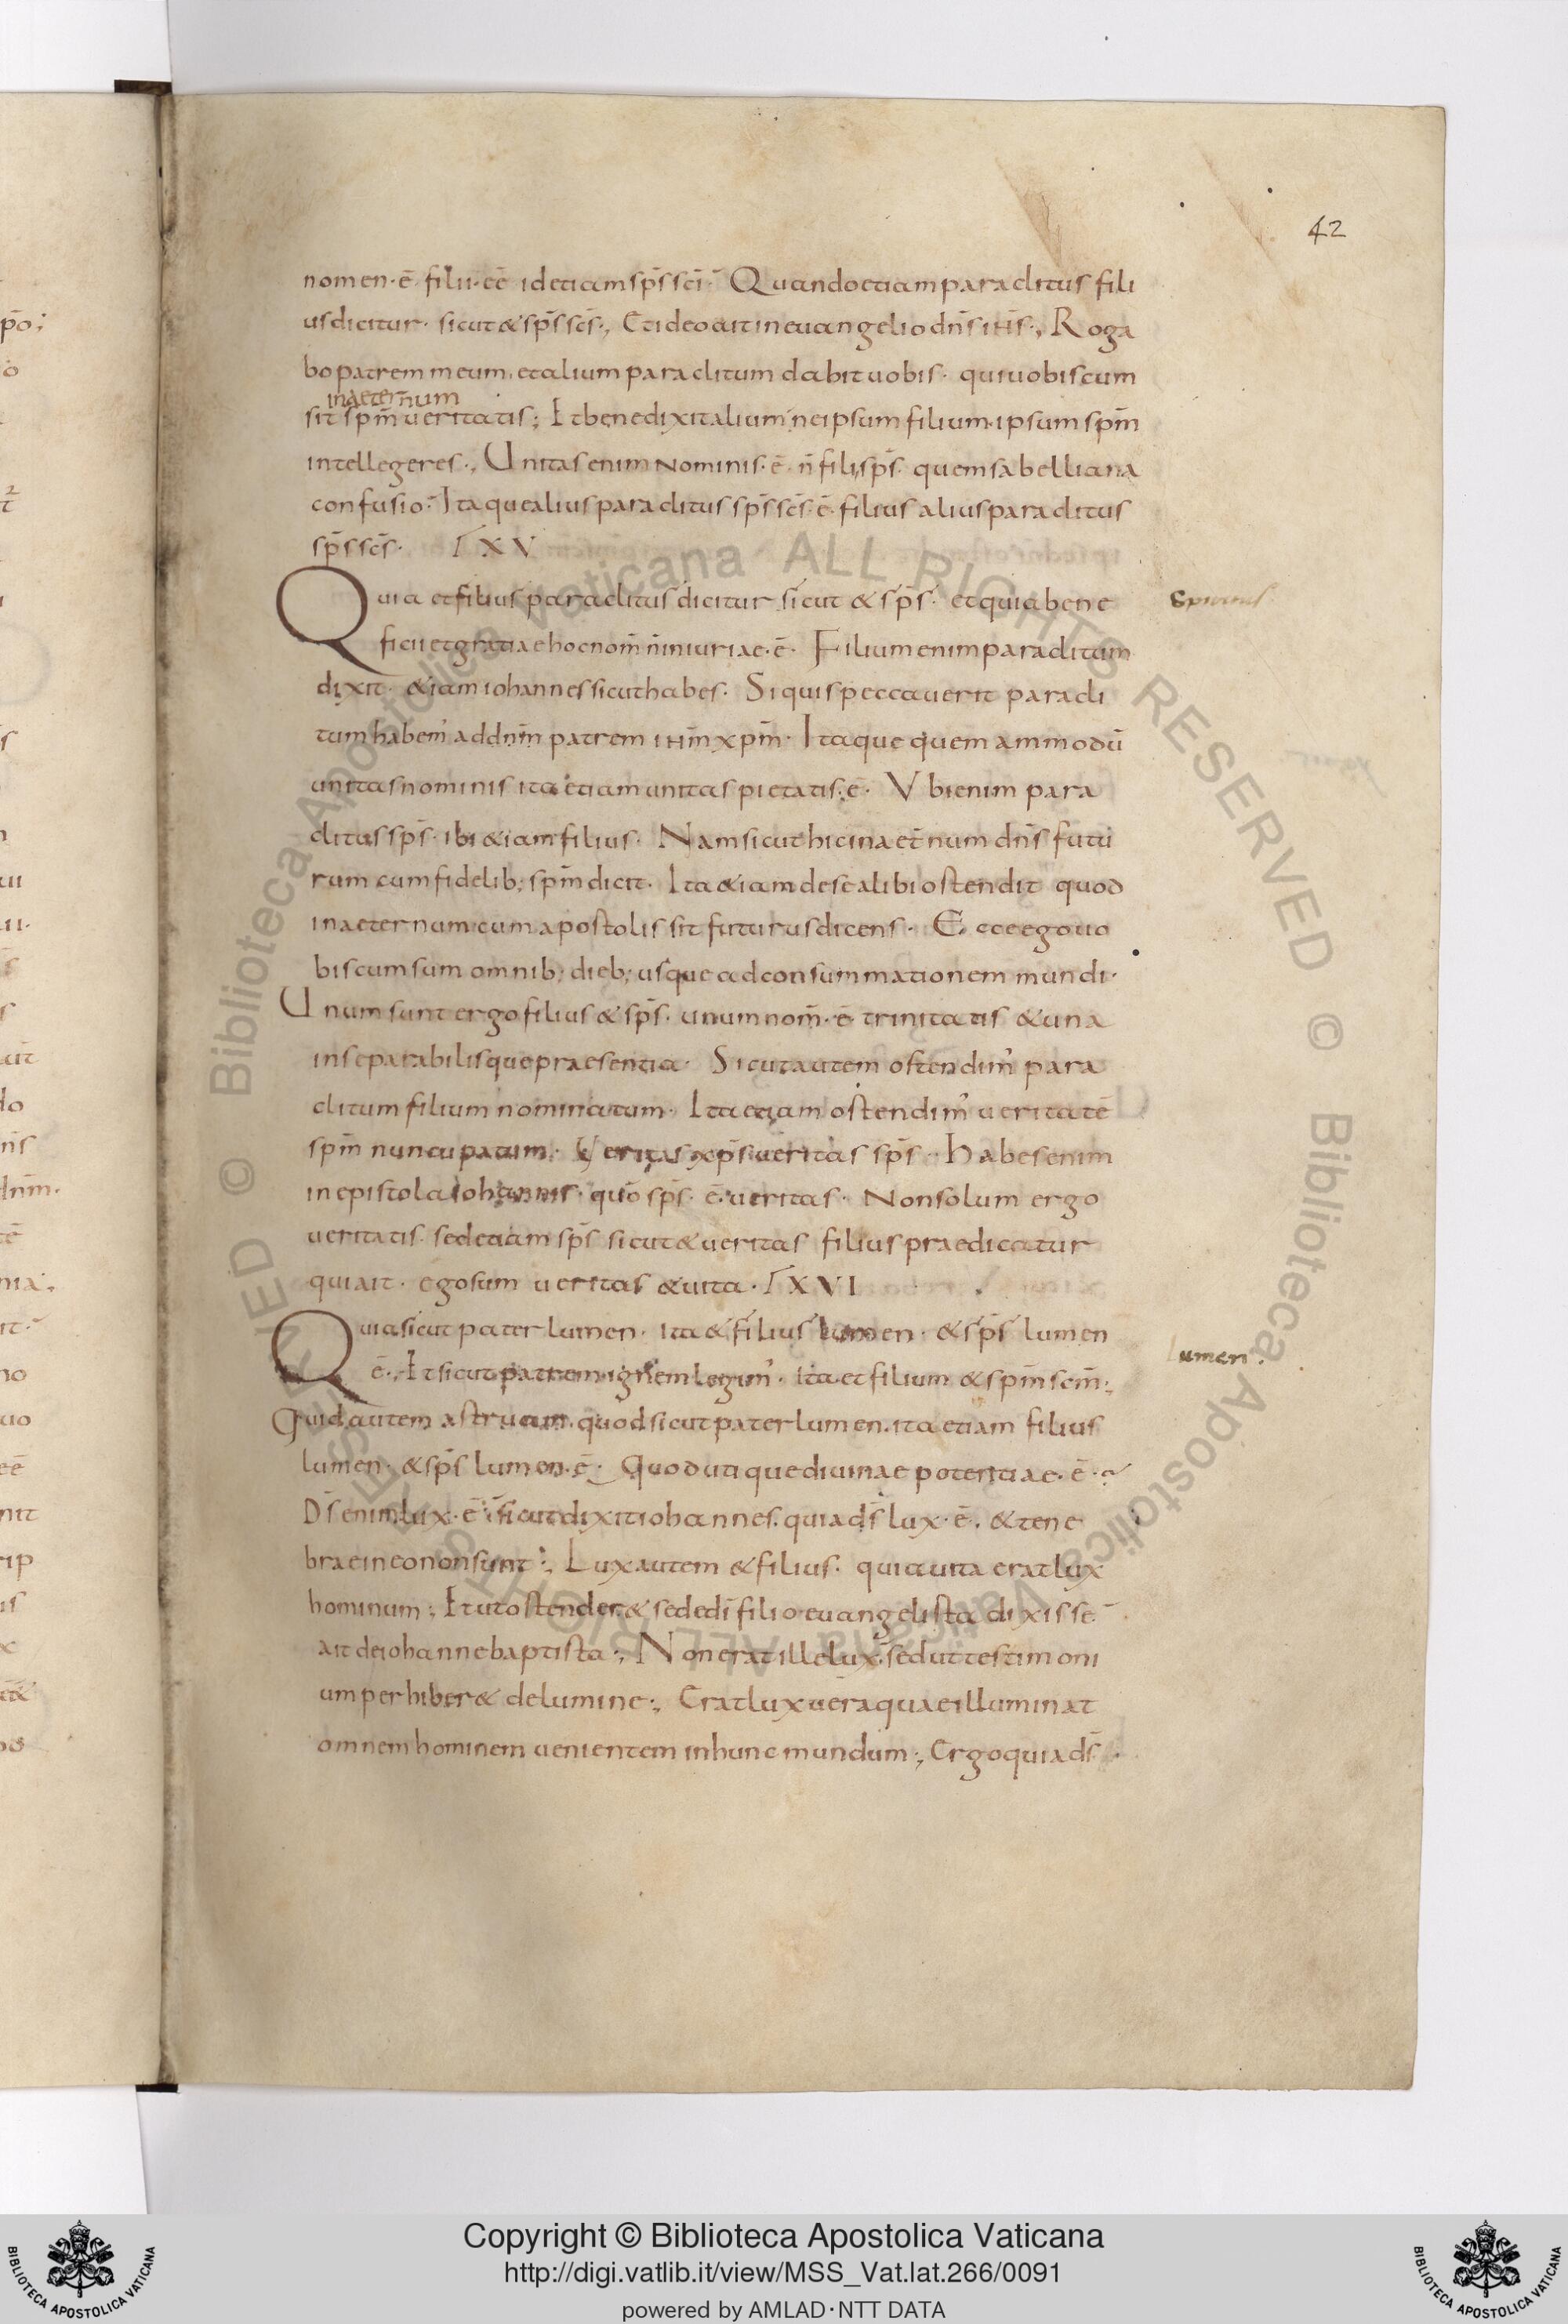 42
nomen·ē· filii·eē idetiamsp̄s sc̄i· Quandoetiamparaclitus fili
usdicitur· sicut&sp̄s sc̄s·, Etideoaitineuangelio dn̄s ih̄s·, Roga
bopatrem meum, etalium paraclitum dabit uobis· quiuobiscum
inaeternum
sit sp̄m ueritatis; Etbenedixitalium neipsum filium·ipsum sp̄m
intellegeres·, Unitas enim nominis·ē· n̄ fili,sp̄s· quem sabelliana
confusio· Itaquealius paraclitus sp̄s sc̄s·ē· filius alius paraclitus
sp̄s sc̄s· LXV
Quia et filius paraclitus dicitur sicut & sp̄s· et quia bene
ficii et gratiae hoc nom̄ n̄ iniuriae·ē· Filium enim paraclitum
dixit· &iam iohannes sicut habes· Si quis peccauerit paracli
tum habem' ad dn̄m patrem ih̄m xp̄m· Itaque quem ammodū
unitas nominis ita etiam unitas pietatis·ē· Vbi enim para
clitus sp̄s· ibi &iam filius· Nam sicut hic inaet̄num dn̄s futu
rum cum fidelib; sp̄m dicit· Ita &iam de se alibi ostendit quod
inaeternum cum apostolis sit futurus dicens· Ecce ego uo
biscum sum omnib; dieb; usque ad consummationem mundi·
Unum sunt ergo filius & sp̄s· unum nom̄·ē· trinitatis & una
inseparabilisque praesentia· Sicut autem ostendim' para
clitum filium nominatum· Ita etiam ostendim' ueritatē
sp̄m nuncupatum· Veritas xp̄s ueritas sp̄s· Habes enim
in epistola iohannis· quō sp̄s·ē·ueritas· Non solum ergo
ueritatis· sed etiam sp̄s sicut & ueritas filius praedicatur
qui ait· ego sum ueritas & uita· LXVI
Quia sicut pater lumen· ita & filius lumen· & sp̄s lumen
ē·, Et sicut patrem ignem legim'· ita et filium & sp̄m sc̄m·,
Quid autem astruam· quod sicut pater lumen· ita etiam filius
lumen· & sp̄s lumen·ē· Quod utique diuinae potentiae·ē·
Ds̄ enim lux·ē· sicut dixit iohannes· quia ds̄ lux·ē· & tene
brae in eo non sunt·, Lux autem & filius· quia uita erat lux
hominum; Et ut ostender& se de dī filio euangelista dixisse·
ait de iohanne baptista·, Non erat ille lux· sed ut testimoni
um perhiber& de lumine·, Erat lux uera quae illuminat
omnem hominem uenientem in hunc mundum·, Ergo quia ds̄
Spiritus
Lumen.
Copyright © Biblioteca Apostolica Vaticana
http://digi.vatlib.it/view/MSS_Vat.lat.266/0091
powered by AMLAD·NTT DATA
BIBLIOTECA APOSTOLICA VATICANA
BIBLIOTECA APOSTOLICA VATICANA
© Biblioteca Apostolica Vaticana ALL RIGHTS RESERVED © Biblioteca Apostolica Vaticana ALL RIGHTS RESERVED